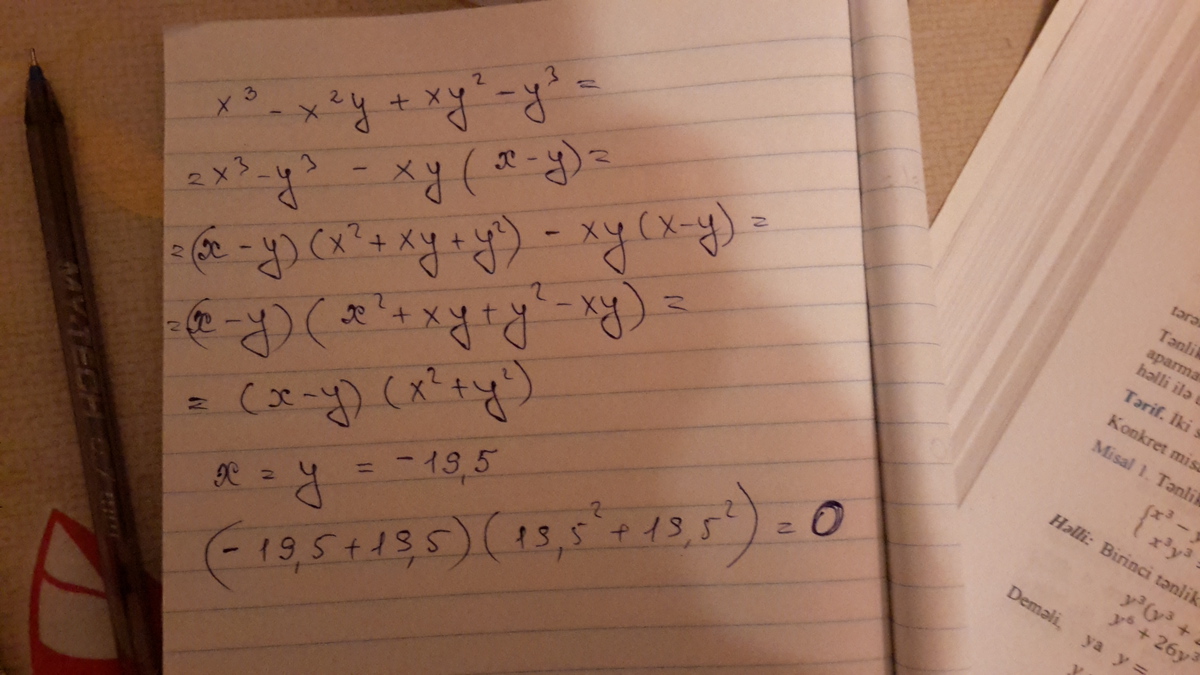 x³ - x²y + xy² - y³ =
= x³ - y³ - xy ( x - y) =
= (x - y) (x² + xy + y²) - xy (x - y) =
= (x - y) ( x² + xy + y² - xy) =
= (x - y) (x² + y²)
x = y = -19,5
(-19,5 + 19,5) (19,5² + 19,5²) = 0
Tənlik
aparma
həlli ilə
Tərif. İki
Konkret misa
Misal 1. Tənli
x³ -
x³y³
Həlli: Birinci tənlik
y³(y³ +
y⁶ + 26y³
Deməli, ya y =